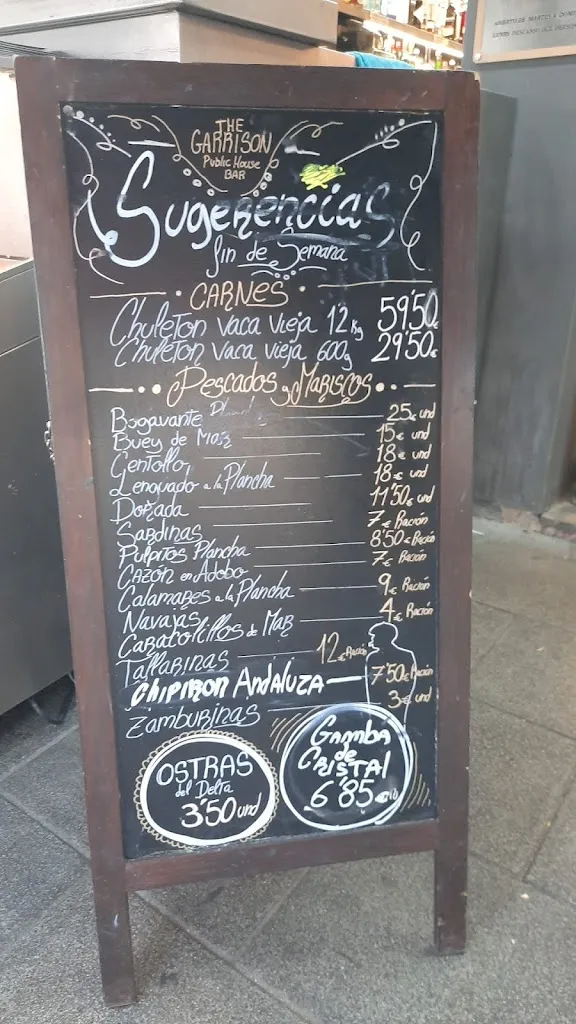 THE
GARRISON
Public House
BAR
Sugerencias
fin de Semana
CARNES
Chuleton vaca vieja 12 Kg 59'50€
Chuleton vaca vieja 600g 29'50€
Pescados y Mariscos
Bogavante 25€ und
Buey de Mar 15€ und
Centollo 18€ und
Lenguado a la Plancha 18€ und
Dorada 11'50€ und
Sardinas 7€ Ración
Pulpitos Plancha 8'50€ Ración
Cazón en Adobo 7€ Ración
Calamares a la Plancha 9€ Ración
Navajas 4€ Ración
Caracolillos de Mar
Tallarinas 12€ Ración
Chipiron Andaluza 7'50€ Ración
Zamburinas 3€ und
OSTRAS
del Delta
3'50 und
Gamba
de
CRISTAL
6'85